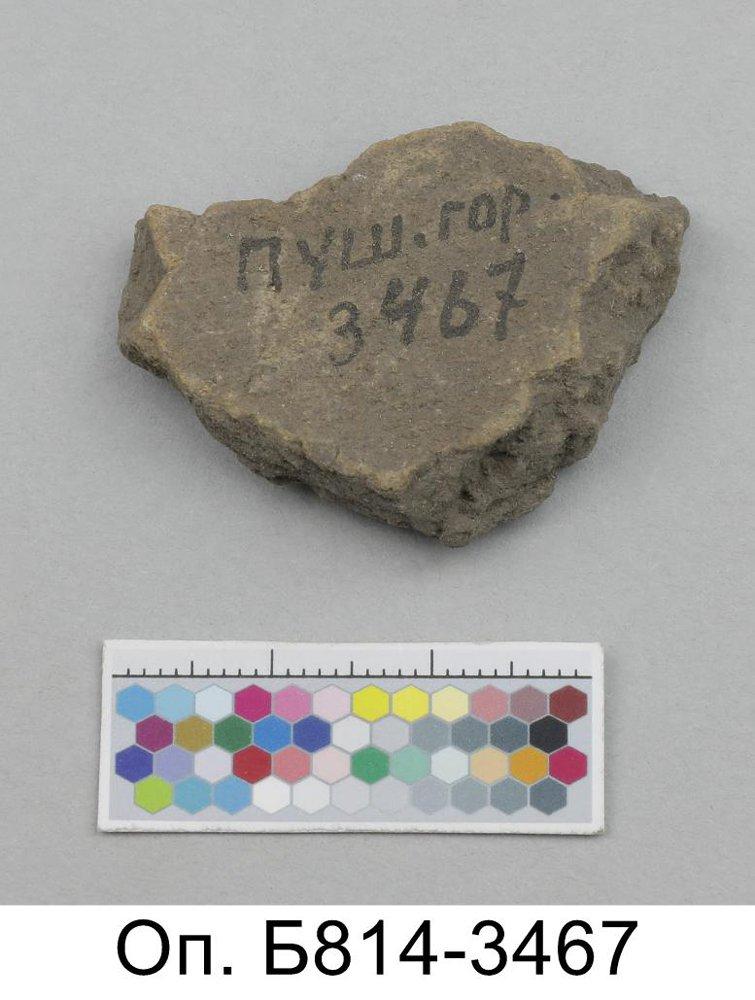 ПУШ.гор.
3467
Оп. Б814-3467